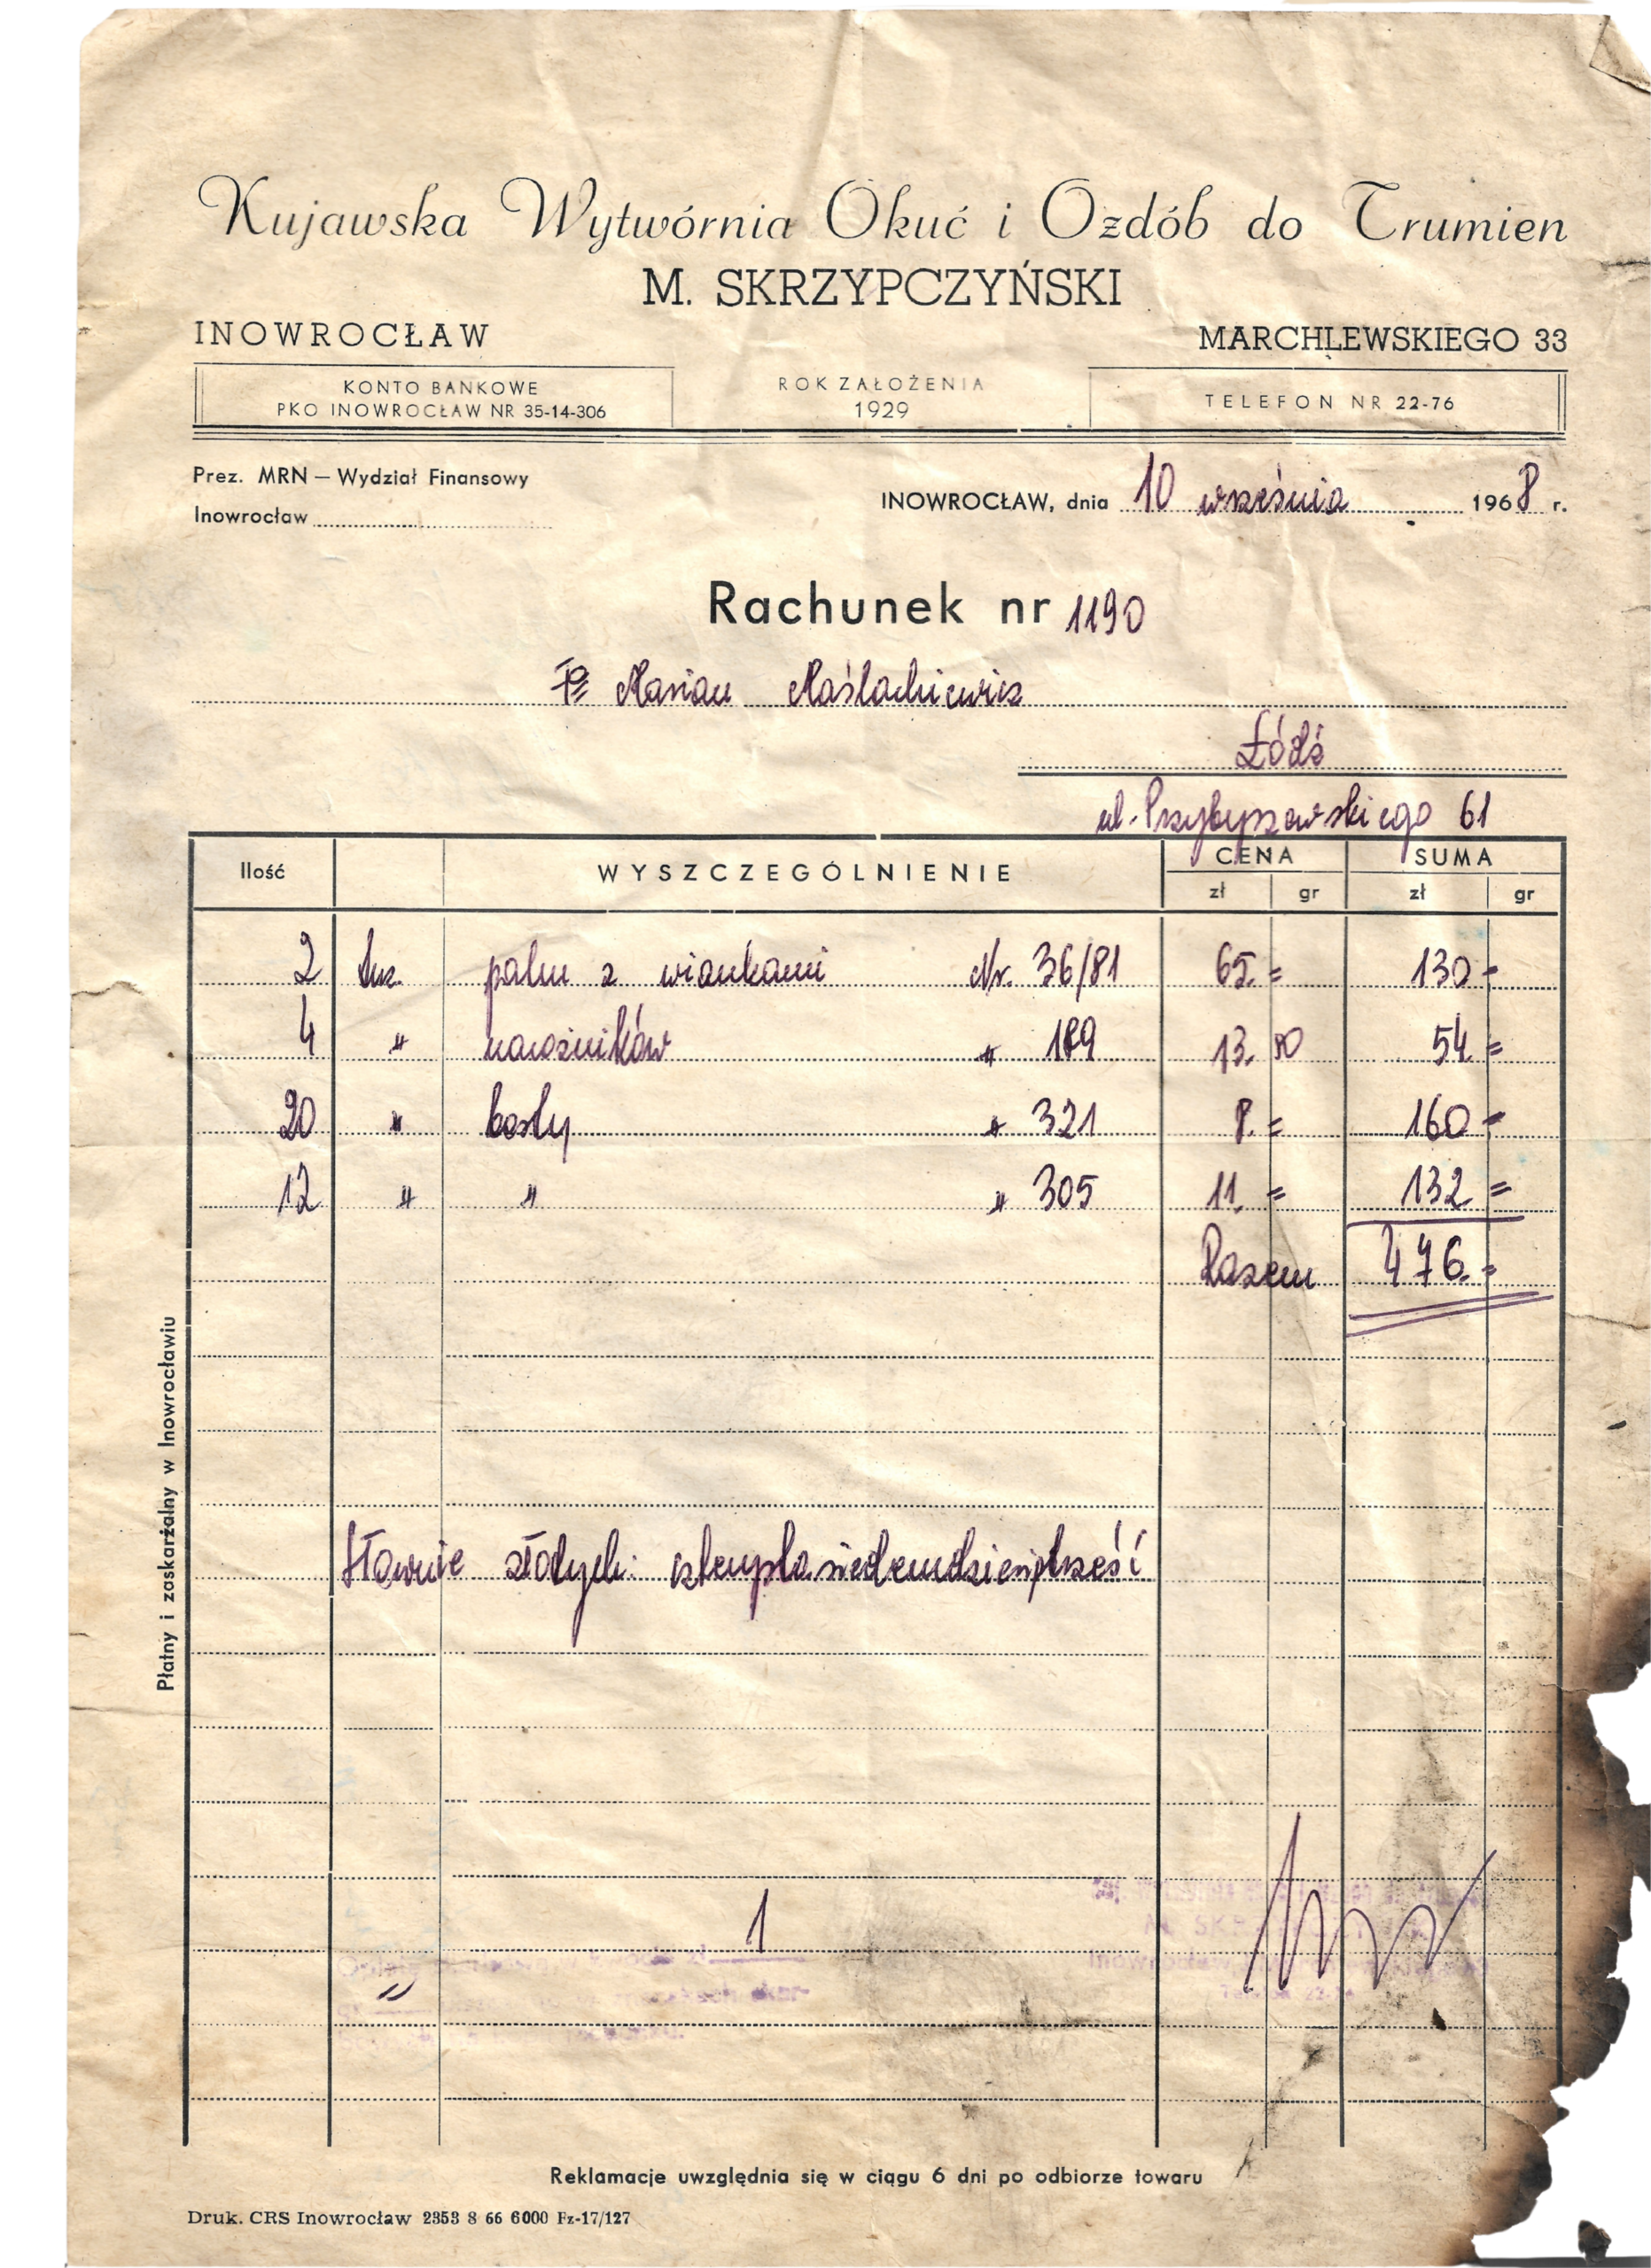 Kujawska Wytwórnia Okuć i Ozdób do Trumien
M. SKRZYPCZYŃSKI
INOWROCŁAW MARCHLEWSKIEGO 33
KONTO BANKOWE
PKO INOWROCŁAW NR 35-14-306
ROK ZAŁOŻENIA
1929
TELEFON NR 22-76
Prez. MRN — Wydział Finansowy
Inowrocław
INOWROCŁAW, dnia 10 września 1968 r.
Rachunek nr 1190
Marian Maślachiewicz
Łódź
ul. Przybyszewskiego 61
Ilość WYSZCZEGÓLNIENIE CENA SUMA
zł gr zł gr
2 tuz. palm z wiankami Nr. 36/81 65.= 130=
4 " narożników " 13.50 54=
20 " " 321 8.= 160=
12 " " " 305 11.= 132=
Razem 476.=
Słownie złotych: czterystasiedemdziesiątsześć
1
Płatny i zaskarżalny w Inowrocławiu
Reklamacje uwzględnia się w ciągu 6 dni po odbiorze towaru
Druk. CRS Inowrocław 2353 8 66 6000 Fz-17/127